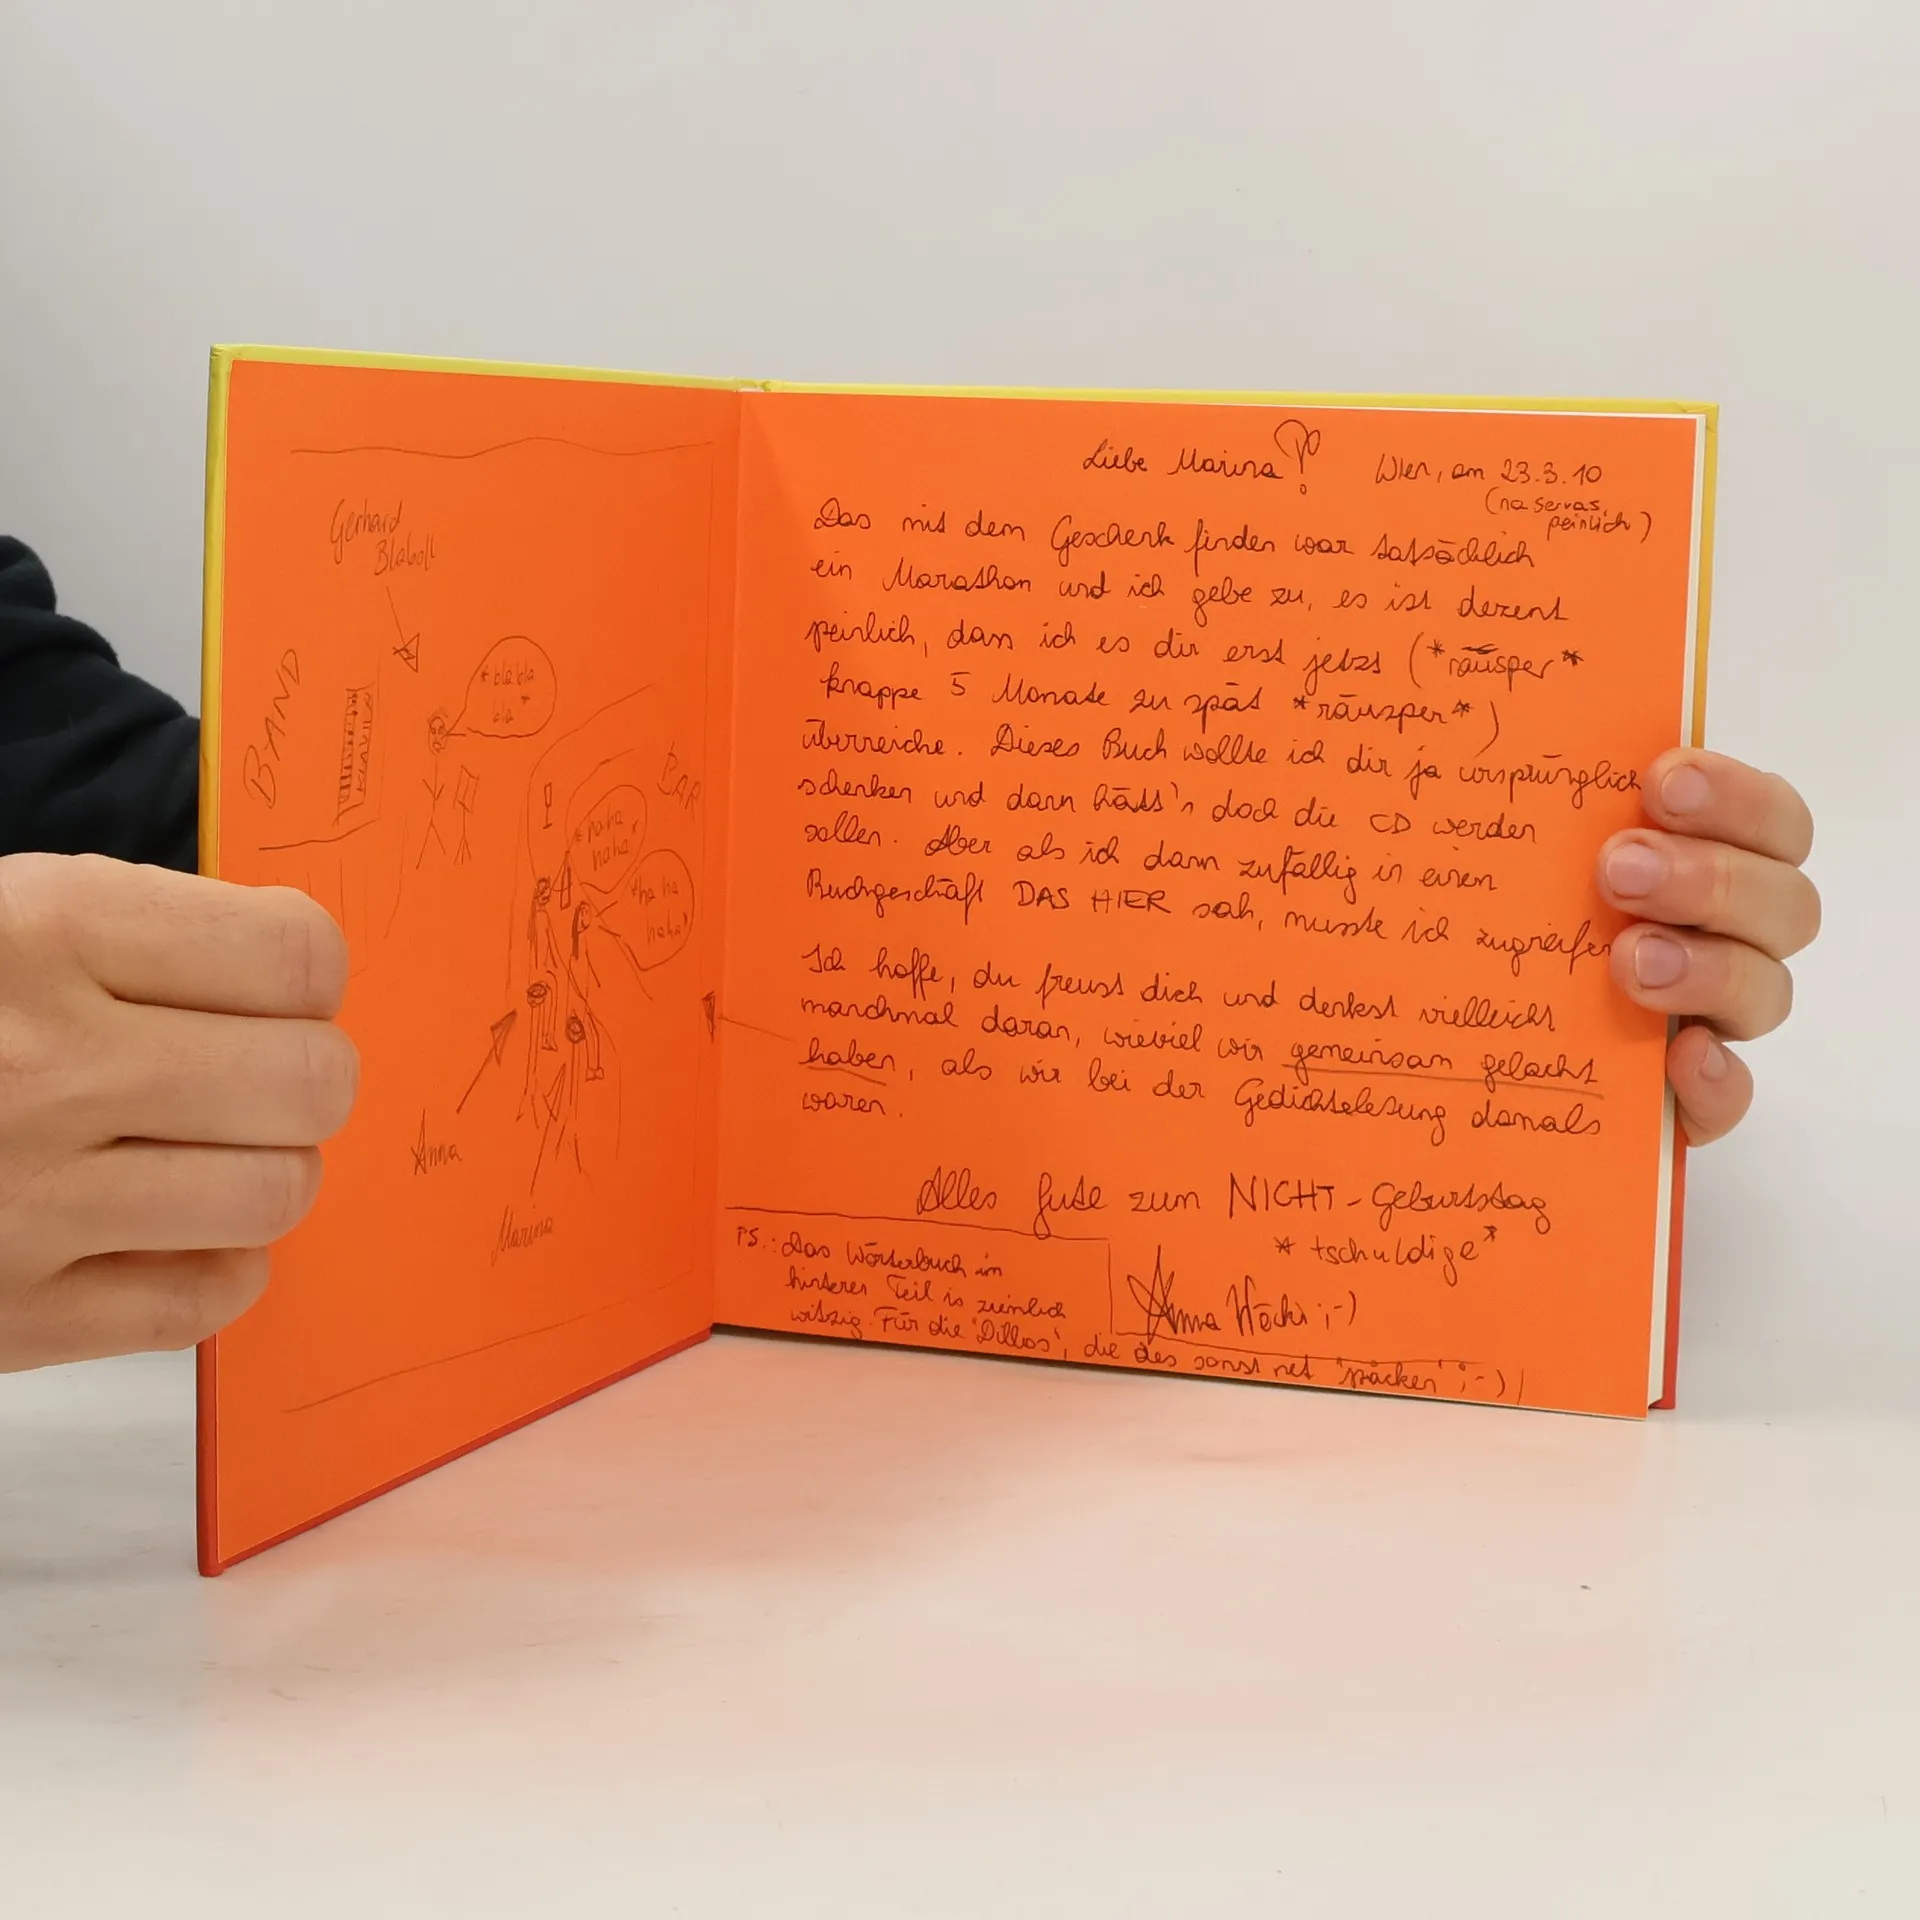 Gerhard
Blaboll
BAND
* bla bla
bla *
BAR
* haha
haha *
* ha ha
haha *
Anna
Marina
Liebe Marina!
Wien, am 23.3.10
(na servas,
peinlich)
Das mit dem Geschenk finden war tatsächlich
ein Marathon und ich gebe zu, es ist dezent
peinlich, dass ich es dir erst jetzt (*räusper*
knappe 5 Monate zu spät *räusper*)
überreiche. Dieses Buch wollte ich dir ja ursprünglich
schenken und dann hätt's doch die CD werden
sollen. Aber als ich dann zufällig in einem
Buchgeschäft DAS HIER sah, musste ich zugreifen
Ich hoffe, du freust dich und denkst vielleicht
manchmal daran, wieviel wir gemeinsam gelacht
haben, als wir bei der Gedichtelesung damals
waren.
Alles Gute zum NICHT-Geburtstag
* tschuldige *
Anna ;-)
PS.: Das Wörterbuch im
hinteren Teil is ziemlich
witzig. Für die 'Dillos', die des sonst net 'späcken' ;-)